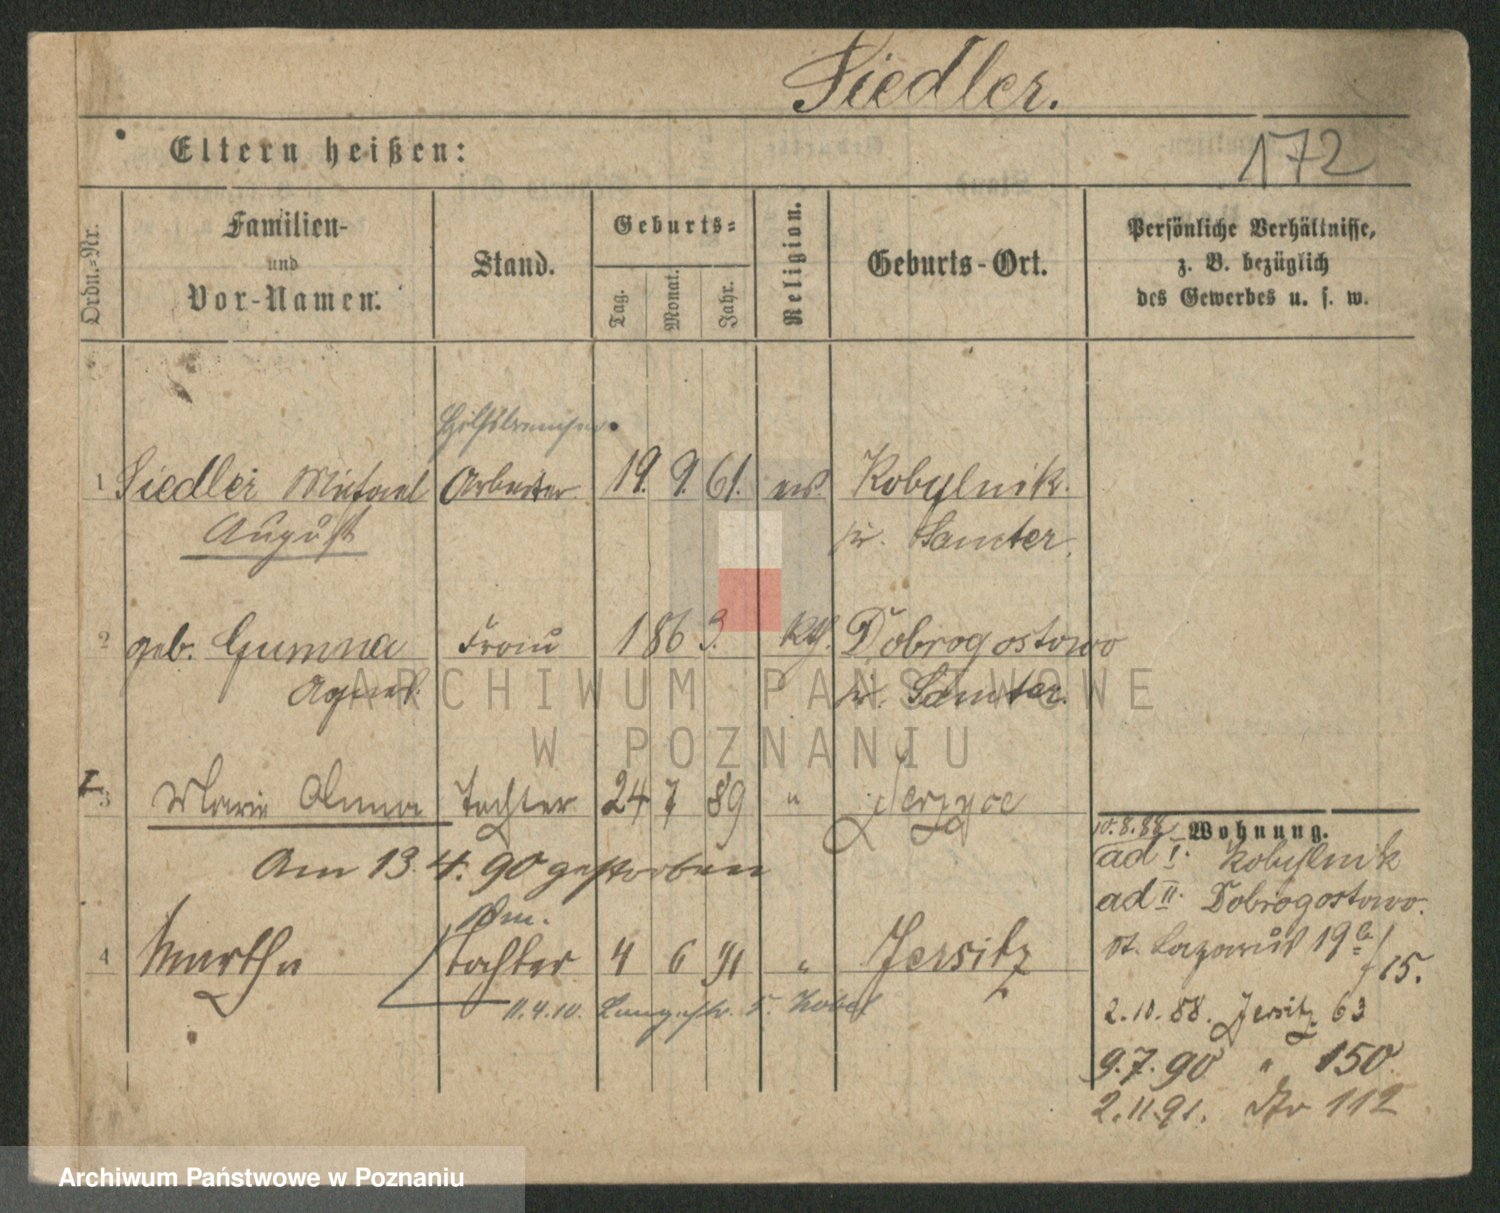 Siedler.
Eltern heißen:
172
Ordn.-Nr.
Familien-
und
Vor-Namen.
Stand.
Geburts-
Tag.
Monat.
Jahr.
Religion.
Geburts-Ort.
Persönliche Verhältnisse,
z. B. bezüglich
des Gewerbes u. s. w.
Hilfsbremser
1 Siedler Michael Arbeiter 19. 9. 61. ev. Kobylnik
August Kr. Samter.
2 geb. Gumna Frau 1863. kth. Dobrogostowo
Agnes. Kr. Samter.
3 Marie Anna Tochter 24 7 89 " Jerzyce
Am 13. 4. 90 gestorben
4 Martha Tochter 4 6 91 " Jersitz
11.4.10. 5.
Wohnung.
10.8.88
ad I. Kobylnik
ad II. Dobrogostowo.
St. Lazarus 19 /15.
2.10.88. Jersitz 63
9.7.90 " 150.
2.11.91. 112
ARCHIWUM PAŃSTWOWE
W POZNANIU
Archiwum Państwowe w Poznaniu